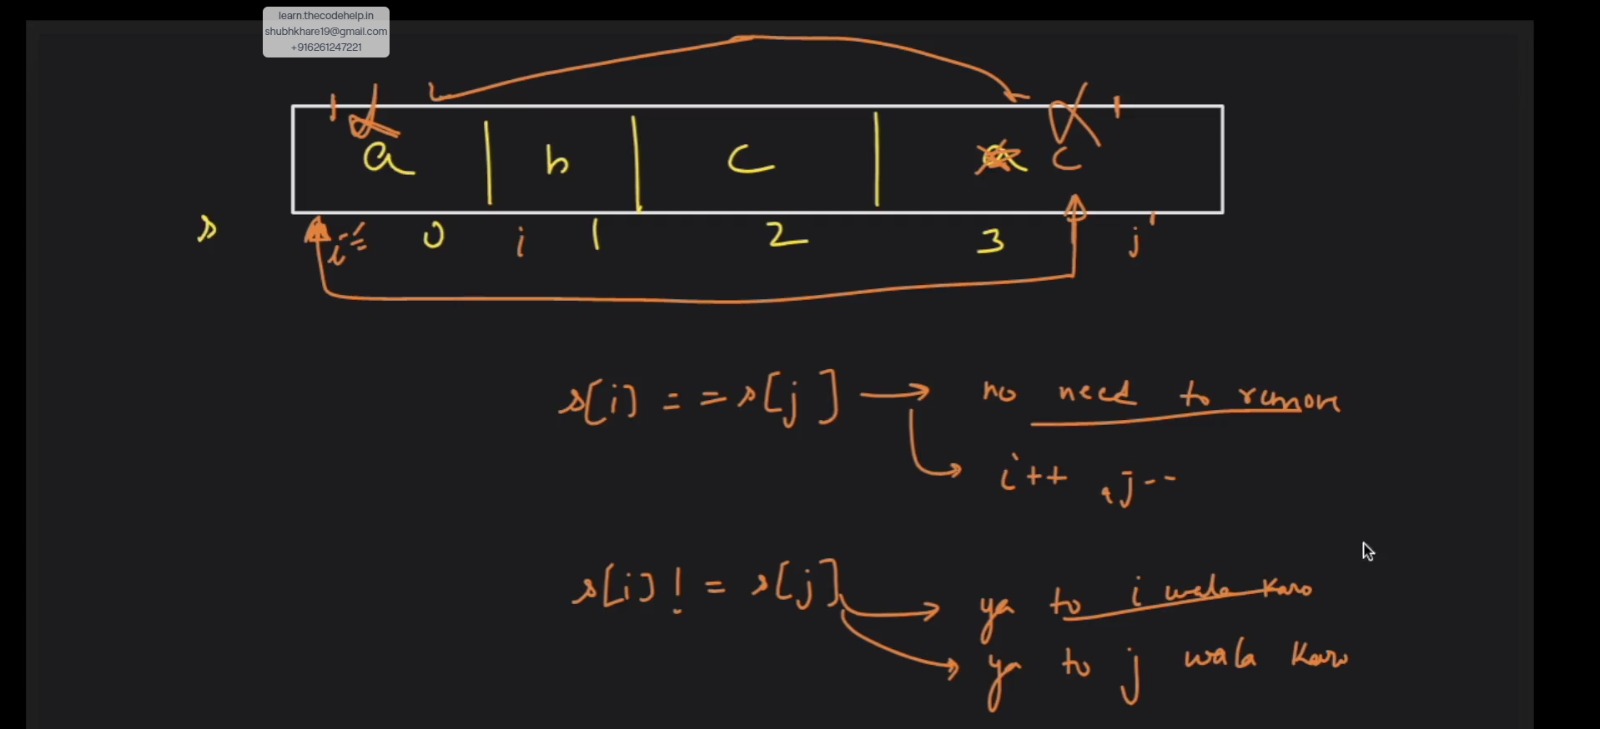 learn.thecodehelp.in
shubhkhare19@gmail.com
+916261247221
a b c c
s i 0 i 1 2 3 j
s[i] == s[j] → no need to remove
i++ , j--
s[i] != s[j] → ya to i wala karo
ya to j wala karo